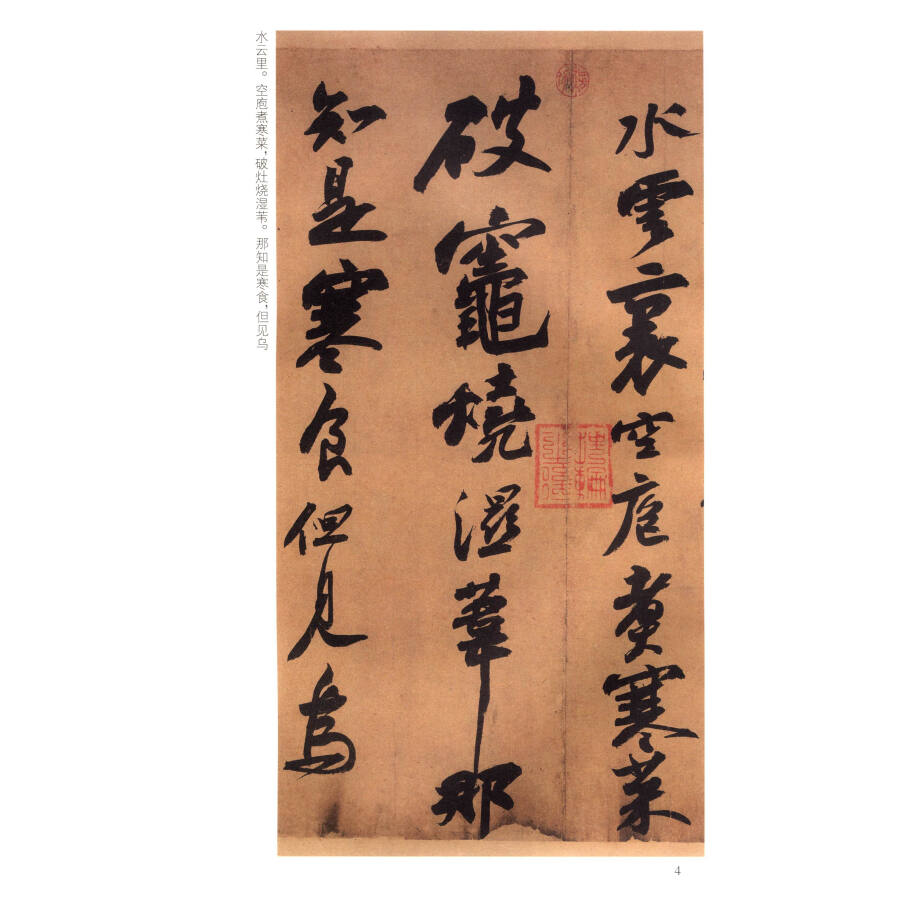 水雲裏空庖煑寒菜
破竈燒濕葦那
知是寒食但見烏
水云里。空庖煮寒菜，破灶烧湿苇。那知是寒食，但见乌
4